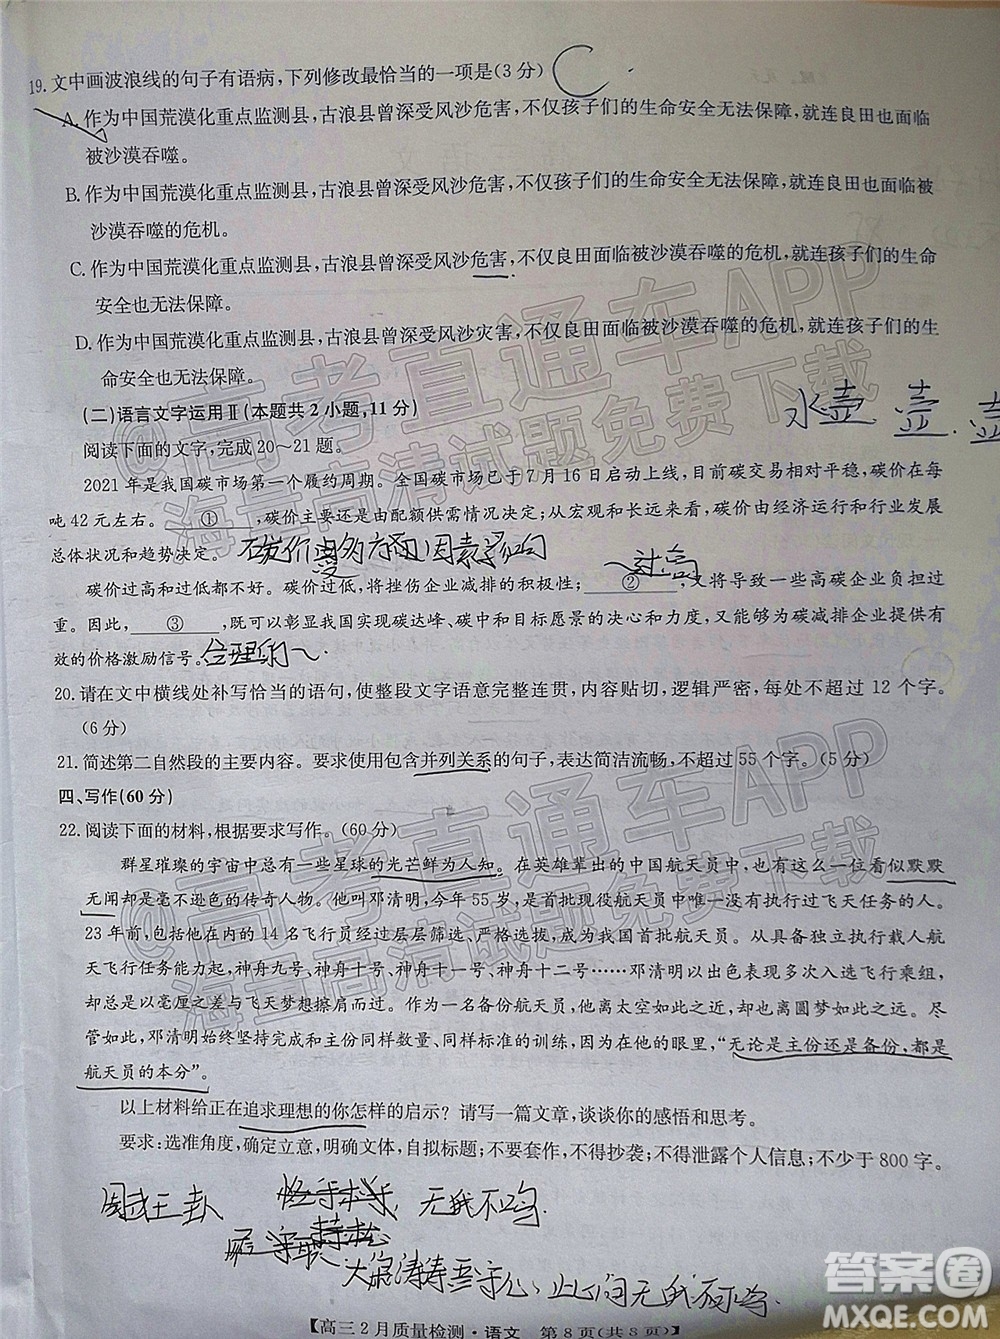 19. 文中画波浪线的句子有语病,下列修改最恰当的一项是(3分)
A. 作为中国荒漠化重点监测县,古浪县曾深受风沙危害,不仅孩子们的生命安全无法保障,就连良田也面临
被沙漠吞噬。
B. 作为中国荒漠化重点监测县,古浪县曾深受风沙危害,不仅孩子们的生命安全无法保障,就连良田也面临被
沙漠吞噬的危机。
C. 作为中国荒漠化重点监测县,古浪县曾深受风沙危害,不仅良田面临被沙漠吞噬的危机,就连孩子们的生命
安全也无法保障。
D. 作为中国荒漠化重点监测县,古浪县曾深受风沙灾害,不仅良田面临被沙漠吞噬的危机,就连孩子们的生
命安全也无法保障。
水壶 壶.壶
(二)语言文字运用Ⅱ(本题共2小题,11分)
阅读下面的文字,完成20~21题。
2021年是我国碳市场第一个履约周期。全国碳市场已于7月16日启动上线,目前碳交易相对平稳,碳价在每
吨42元左右。 ① ,碳价主要还是由配额供需情况决定;从宏观和长远来看,碳价由经济运行和行业发展
总体状况和趋势决定。
碳价受多方面因素影响
过高
碳价过高和过低都不好。碳价过低,将挫伤企业减排的积极性; ② ,又将导致一些高碳企业负担过
重。因此, ③ ,既可以彰显我国实现碳达峰、碳中和目标愿景的决心和力度,又能够为碳减排企业提供有
效的价格激励信号。
合理的
20. 请在文中横线处补写恰当的语句,使整段文字语意完整连贯,内容贴切,逻辑严密,每处不超过12个字。
(6分)
21. 简述第二自然段的主要内容。要求使用包含并列关系的句子,表达简洁流畅,不超过55个字。(5分)
四、写作(60分)
22. 阅读下面的材料,根据要求写作。(60分)
群星璀璨的宇宙中总有一些星球的光芒鲜为人知。在英雄辈出的中国航天员中,也有这么一位看似默默
无闻却毫不逊色的传奇人物。他叫邓清明,今年55岁,是首批现役航天员中唯一没有执行过飞天任务的航天员。
23年前,包括他在内的14名飞行员经过层层筛选、严格选拔,成为我国首批航天员。从具备独立执行载人航
天飞行任务的能力算起,神舟九号、神舟十号、神舟十一号、神舟十二号……邓清明以出色表现多次入选飞行乘组,
却总是以毫厘之差与飞天梦想擦肩而过。作为一名备份航天员,他离太空如此之近,也离圆梦如此之远。尽
管如此,邓清明始终坚持完成与主份同样数量、同样标准的训练,因为在他的眼里,“无论是主份还是备份,都是
航天员的本分”。
以上材料给正在追求理想的你怎样的启示?请写一篇文章,谈谈你的感悟和思考。
要求:选准角度,确定立意,明确文体,自拟标题;不要套作,不得抄袭;不得泄露个人信息;不少于800字。
无我不鸣.
【高三2月质量检测·语文 第8页(共8页)】
@高考直通车APP
海量高清试题免费下载
@高考直通车APP
海量高清试题免费下载
答案圈
MXQE.COM